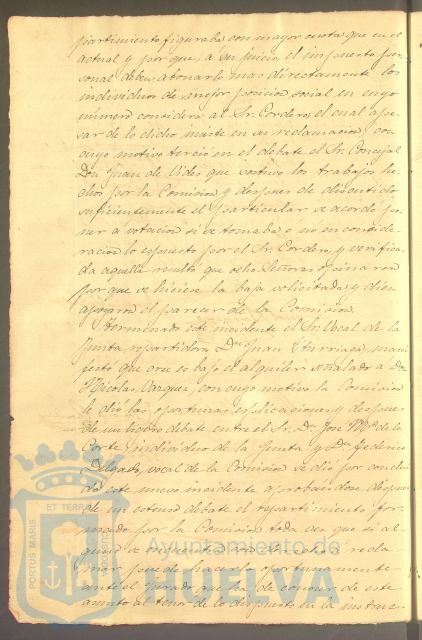 partimiento figuraba con mayor cuota que en el
actual y por que, a su juicio el impuesto per-
sonal deben abonarlo mas directamente los
individuos de mejor posicion social en cuyo
número considera al Sr. Cordero, el cual ape-
sar de lo dicho insiste en su reclamacion, con
cuyo motivo terció en el debate el Sr. Concejal
Don Juan de Vides que sostuvo los trabajos he-
chos por la Comision y despues de discutido
suficientemente el particular se acordó po-
ner a votacion si se tomaba o no en conside-
racion lo espuesto por el Sr. Cordero, y verifica-
da aquella resultó que ocho Señores opinaron
por que se hiciese la baja solicitada, y diez
apoyaron el parecer de la Comision.
Terminado este incidente el Sr. Vocal de la
Junta repartidora Dn. Juan Iturriaga, mani-
festó que cree es bajo el alquiler señalado a Dn.
Nicolas Vazquez, con cuyo motivo la Comision
le dió las oportunas esplicaciones, y despues
de un ligero debate entre el Sr. Dn. José Ma. de la
Corte, individuo de la Junta y Dn. Federico
Delgado, vocal de la Comision se dió por conclui-
do este nuevo incidente aprobandose despues
de un estenso debate el repartimiento for-
mado por la Comision toda vez que si al-
guno se encuentra
mar puede hacerlo oportunamente
ante el Jurado que ha de conocer de este
asunto al tenor de lo dispuesto en la instruc-
PORTUS MARIS ET TERRAE CUSTODIA
Ayuntamiento de
HUELVA